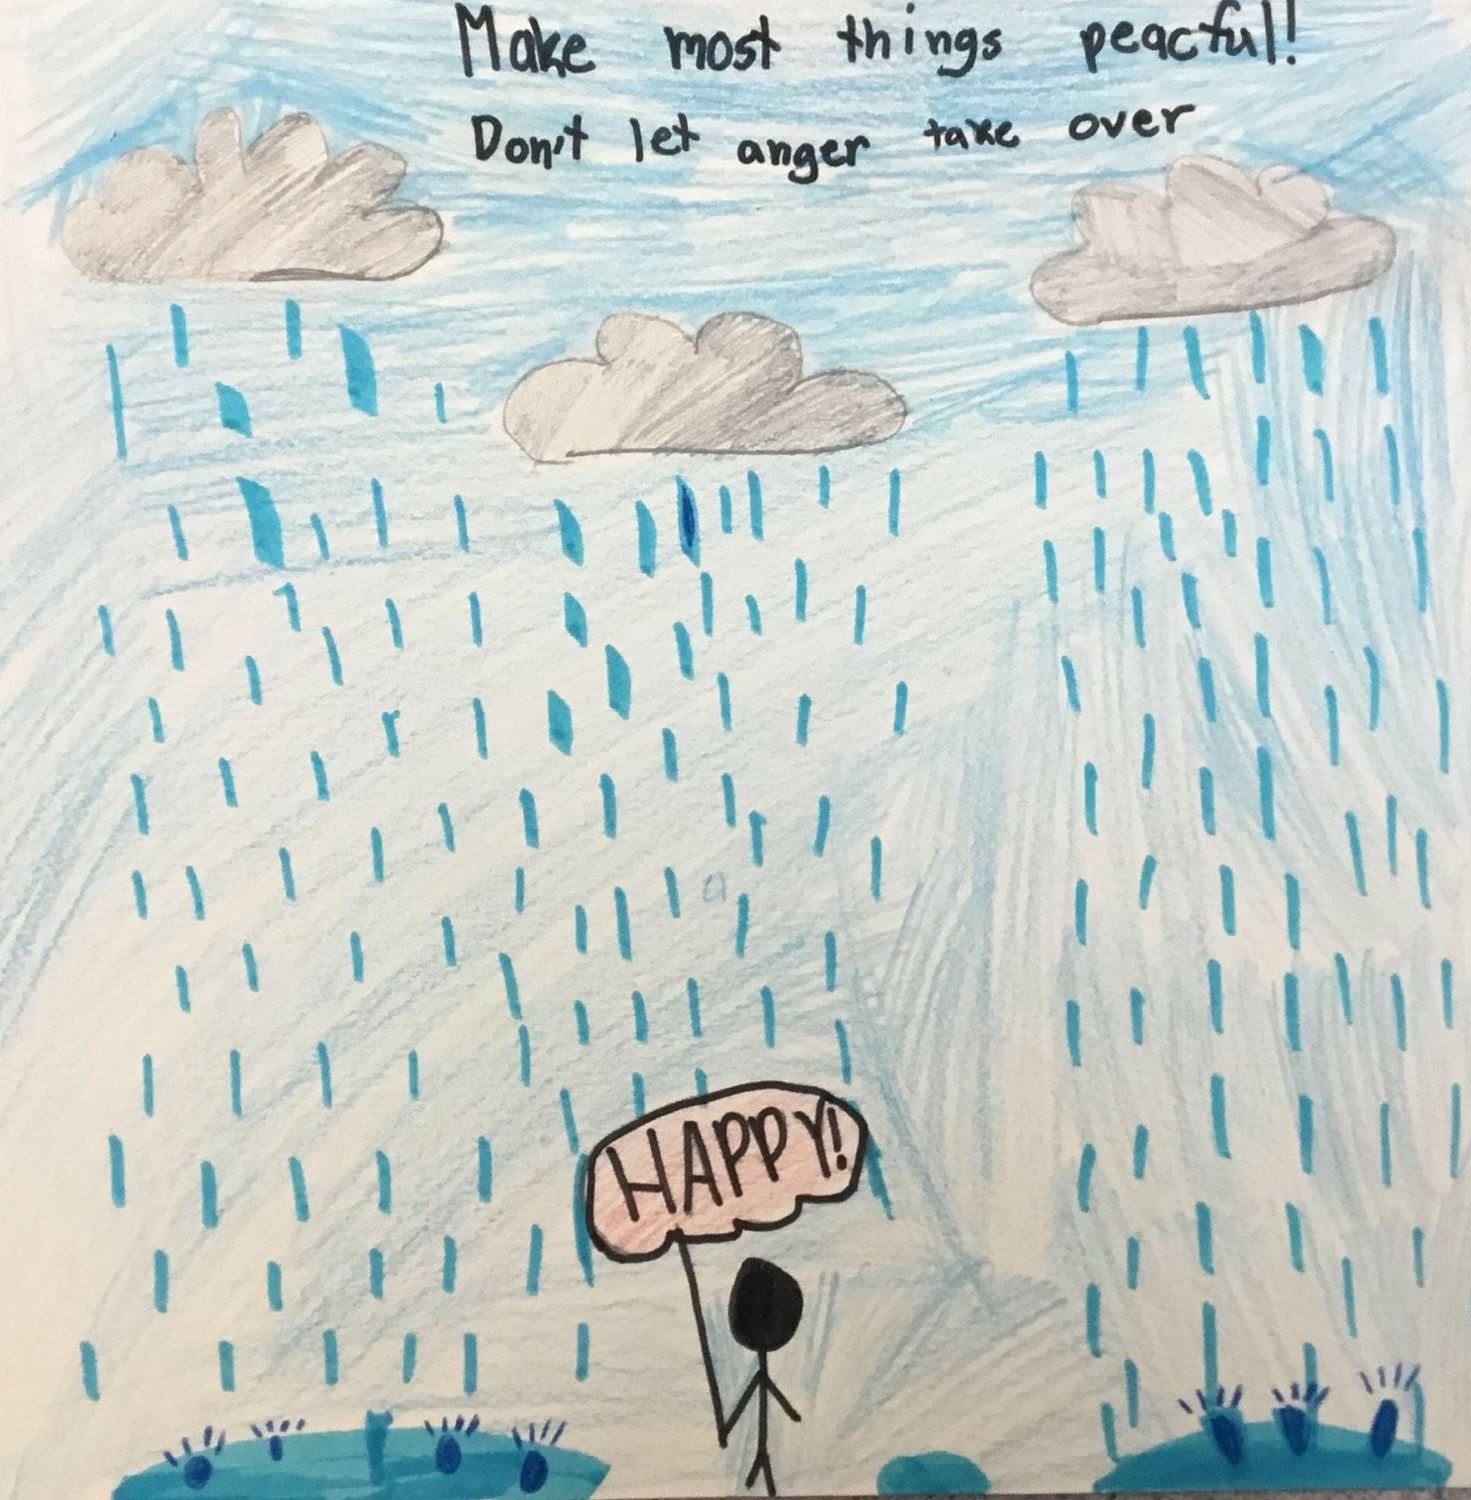 Make most things peacful!
Don't let anger take over
HAPPY!